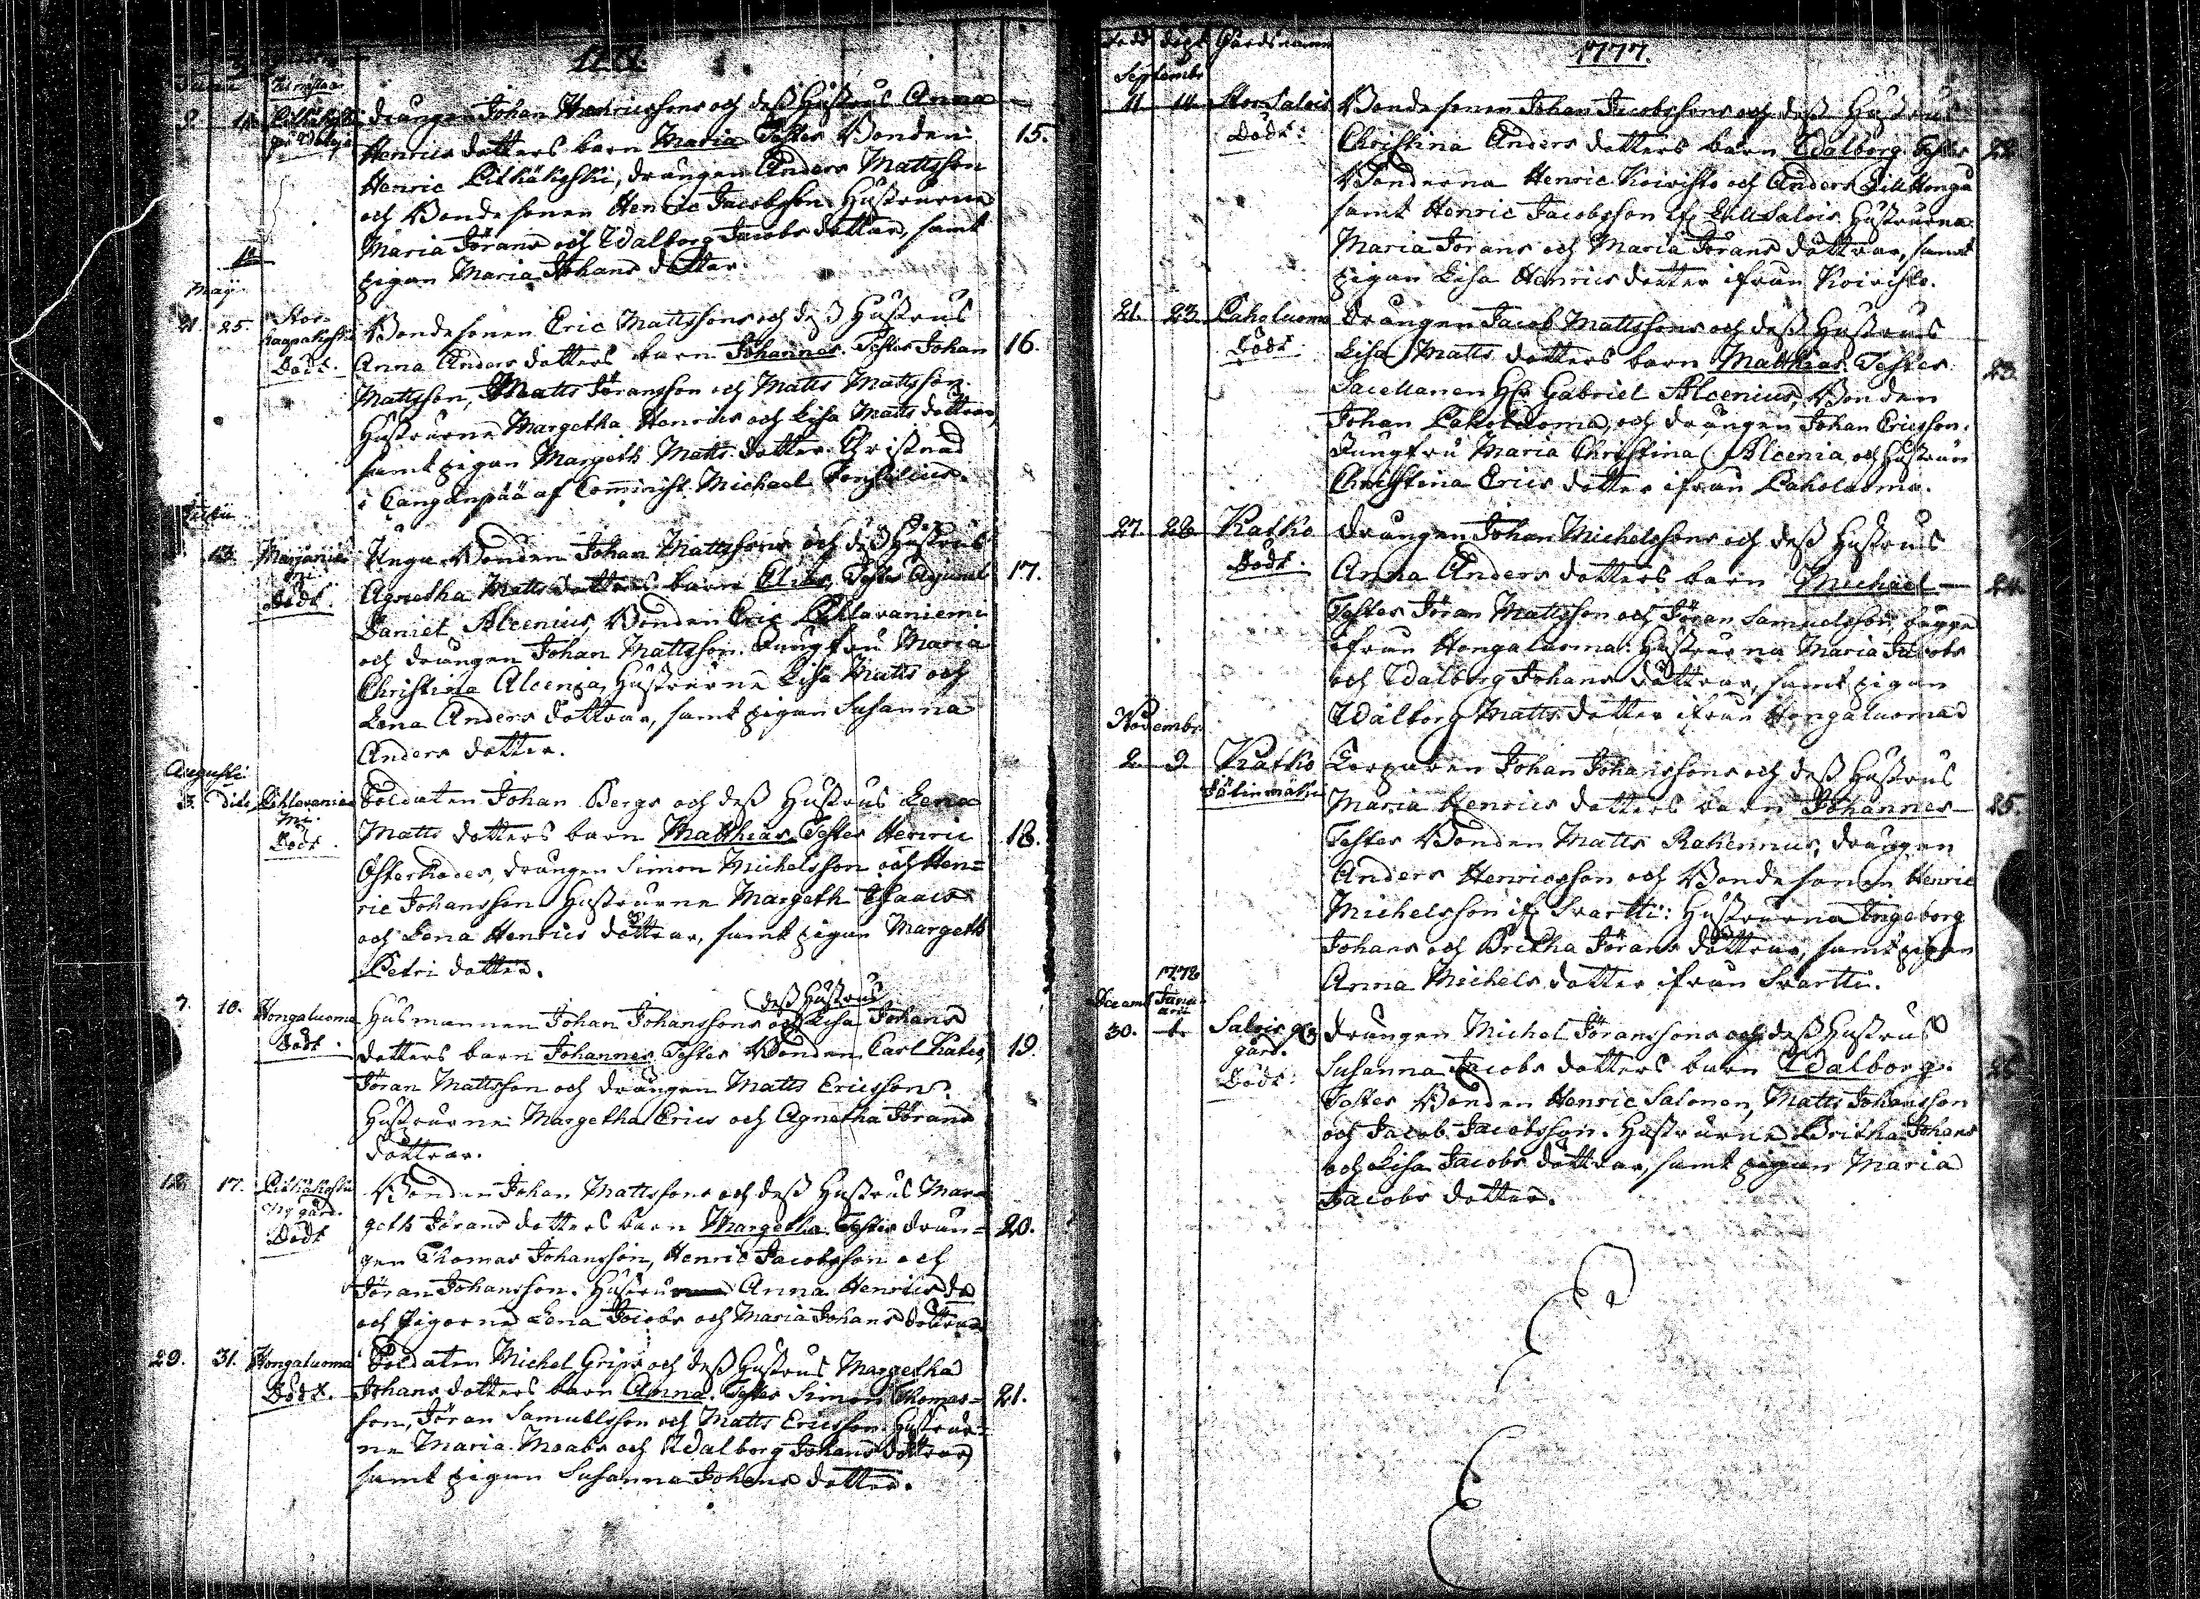 Drängen Johan Henricssons och deß Hustrus Anna
9. 11. Pitkäkoski
Henrics dotters barn Maria Testes Bonden 15.
Henric Pitkäkoski, drängen Anders Mattsson
och Bonde sonen Henric Jacobsson. Hustrurne
Maria Jörans och Walborg Jacobs döttrar, samt
pigan Maria Johans dotter.
Maji
21. 25. Stor Haapakoski Bondesonen Eric Mattssons och deß Hustrus
Död. Anna Anders dotters barn Johannes. Testes Johan 16.
Mattsson, Matts Jöransson och Matts Mattsson.
Hustrurne Margetha Henrics och Lisa Matts döttrar,
samt pigan Margeth Matts dotter. Christnad
i Cangånpää af Cominist. Michael Forselius.
13. Marjanie mi Unga Bonden Johan Mattssons och deß Hustrus
Död. Agnetha Matts dotters barn Testes Adjunct 17.
Daniel Alcenius, Bonden Eric Pihlavaniemi
och drängen Johan Mattsson. Jungfru Maria
Christina Alcenia, Hustrurne Lisa Matts och
Lena Anders döttrar, samt pigan Susanna
Anders dotter.
Augusti
dito Pihlavanie mi. Soldaten Johan Bergs och deß Hustrus Lena
Död. Matts dotters barn Matthias. Testes Henric 18.
Österkades, drängen Simon Michelsson och Hen=
ric Johansson. Hustrurne Margeth Isaacs
och Lena Henrics döttrar, samt pigan Margeth
Petri dotter.
deß Hustrus
7. 10. Hongaluoma Husmannen Johan Johanssons och Lisa Johans
Död. dotters barn Johannes. Testes Bonden Carl Katko, 19.
Jöran Mattsson och drängen Matts Ericsson.
Hustrurne Margetha Erics och Agnetha Jörans
döttrar.
12. 17. Pitkäkoski Nygård. Bonden Johan Mattssons och deß Hustrus Mar=
Död geth Jörans dotters barn Margetha. Testes drän= 20.
gen Thomas Johansson, Henric Jacobsson och
Jöran Johansson. Hustru Anna Henrics do
och Pigorne Lena Jacobs och Maria Johans döttrar
29. 31. Hongaluoma Soldaten Michel Grips och deß Hustrus Margetha
Död. Johans dotters barn Anna. Testes Simon Thomas= 21.
son, Jöran Samuelsson och Matts Ericsson. Hustrur=
ne Maria Moabs och Walborg Johans döttrar,
samt pigan Susanna Johans dotter.
född döpt Gårdsnamn 1777.
Septembr
11. 14. Stor Salois Bonde sonen Johan Jacobssons och deß Hustrus
Död. Christina Anders dotters barn Walborg. Testes 22.
Bönderna Henric Koivisto och Anders Lill Honga
samt Henric Jacobsson if. Lill Salois. Hustrurna
Maria Jörans och Maria Jörans döttrar, samt
pigan Lisa Henrics dotter ifrån Koivisto.
21. 23. Paholuoma Drängen Jacob Mattssons och deß Hustrus
Död. Lisa Matts dotters barn Matthias. Testes 23.
Sacellanen Hr Gabriel Alcenius, Bonden
Johan Paholuoma, och drängen Johan Ericsson.
Jungfru Maria Christina Alcenia, och Hustrun
Christina Erics dotter ifrån Paholuoma.
27. 28. Katko Drängen Johan Michelssons och deß Hustrus
Död. Anna Anders dotters barn Michael 24.
Testes Jöran Mattsson och Jöran Samuelsson, bägge
ifrån Hongaluoma. Hustrurna Maria Jacobs
och Walborg Johans döttrar, samt pigan
Walborg Matts dotter ifrån Hongaluoma
Novembr
2. 9. Katko Torparen Johan Johanssons och deß Hustrus
Maria Henrics dotters barn Johannes 25.
Testes Bonden Matts Rahennus, drängen
Anders Henricsson och Bonde sonen Henric
Michelsson if. Svartti: Hustrurna Ingeborg
Johans och Britha Jörans döttrar, samt pigan
Anna Michels dotter ifrån Svartti.
1778
Decemb Janu arii
30. 1. Salois gård. Drängen Michel Jöranssons och deß Hustrus
Död. Susanna Jacobs dotters barn Walborg. 26.
Testes Bonden Henric Salonen, Matts Johansson
och Jacob Jacobsson. Hustrurne Britha Johans
och Lisa Jacobs döttrar, samt pigan Maria
Jacobs dotter.